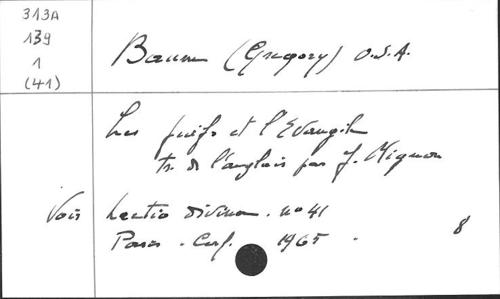 313A
139
1
(41)
Baum (Gregory) O.S.A.
Les juifs et l'Evangile
tr. de l'anglais par J. Mignon
Voir Lectio divina. n° 41
Paris. Cerf. 1965.
8